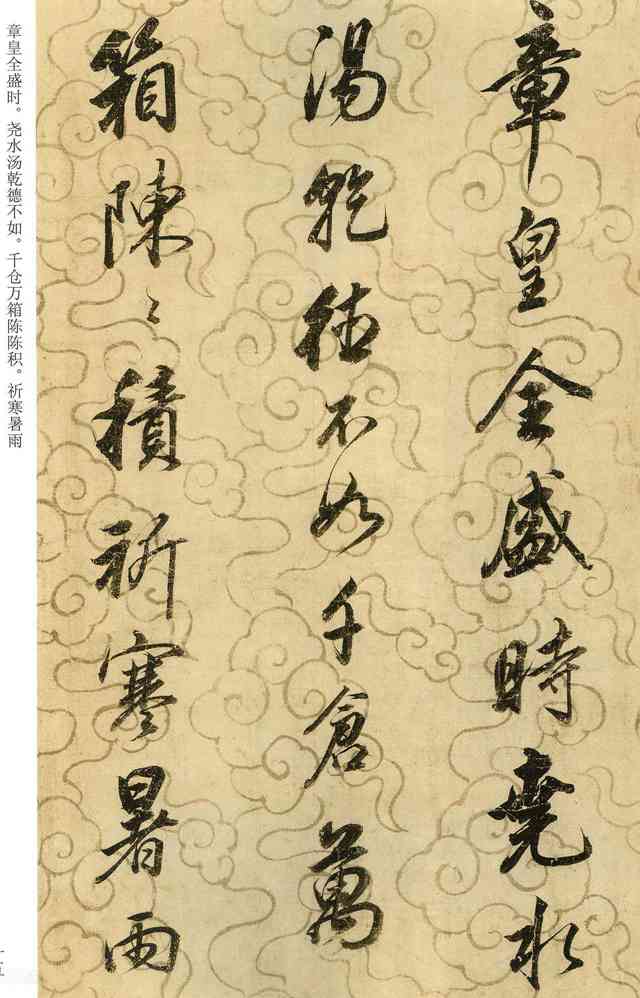 章皇全盛時堯水
湯乾德不如千倉萬
箱陳〻積祈寒暑雨
章皇全盛时。尧水汤乾德不如。千仓万箱陈陈积。祈寒暑雨